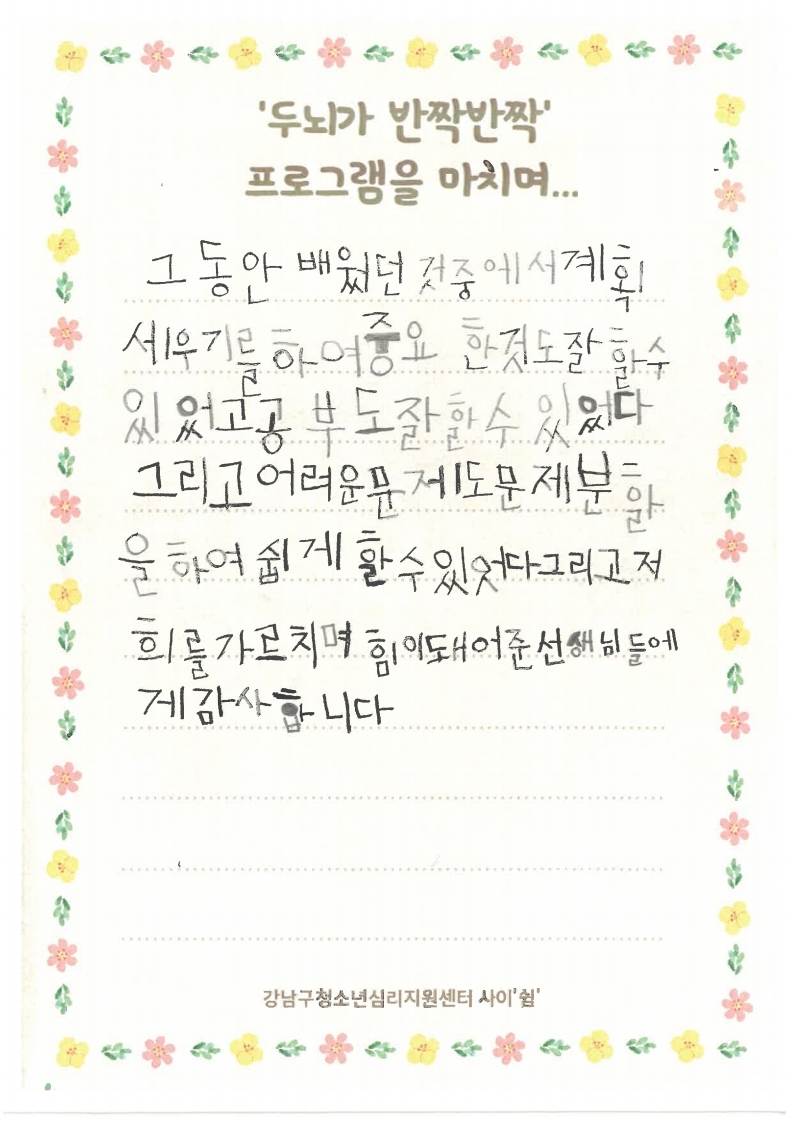 '두뇌가 반짝반짝'
프로그램을 마치며...
그 동안 배웠던 것중에서계획
세우기를하여중요 한것도잘할수
있었고공부도잘할수 있었다
그리고어려운문제도문제분할
을하여 쉽게 할수있엇다그리고저
희를가르치며 힘이돼어준선생님들에
게감사합니다
강남구청소년심리지원센터 사이'쉼'